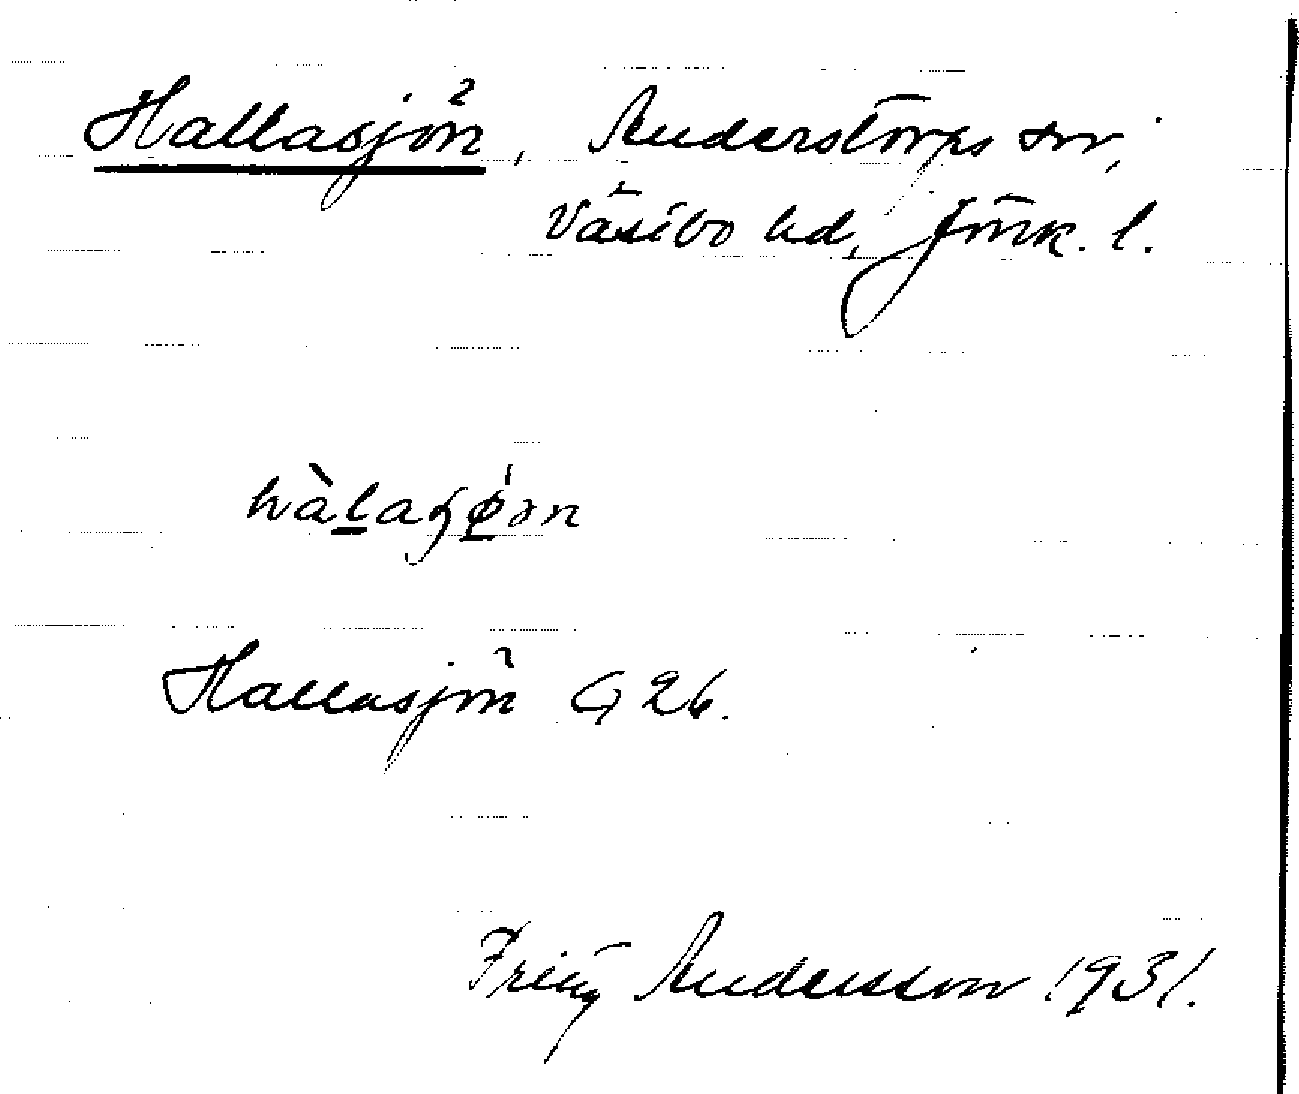 Hallasjön, Anderstorps sn,
Västbo hd, Jönk. l.
hàlaʂø̀ən
Hallasjön G 26.
Fritz Andersson 1931.